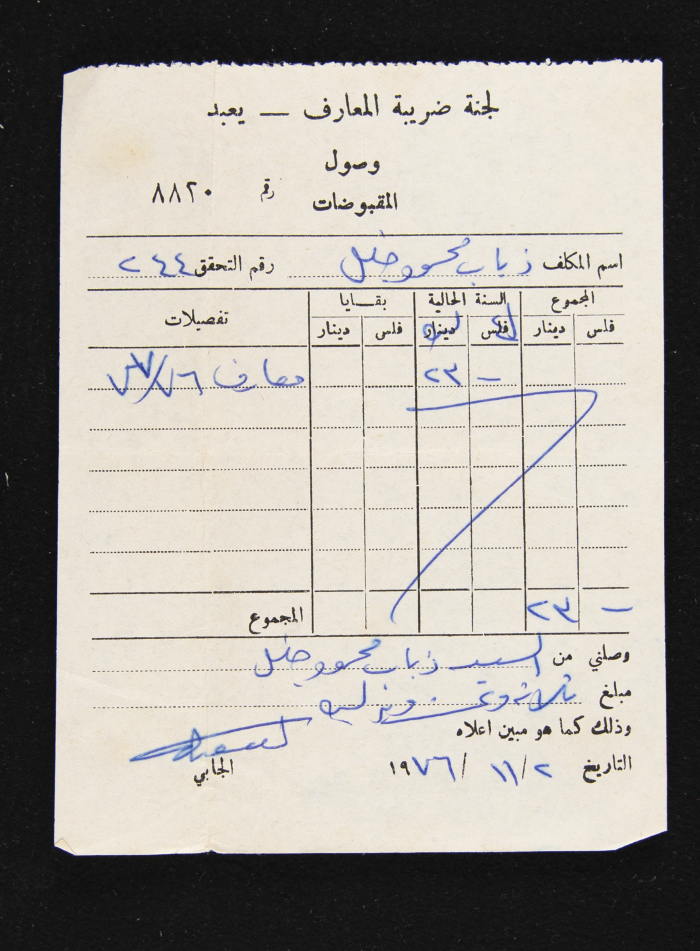 لجنة ضريبة المعارف — يعبد
وصول
المقبوضات
رقم ٨٨٢٠
اسم المكلف ذياب محمود خليل رقم التحقق ٢٤٤
المجموع السنة الحالية بقايا تفصيلات
فلس دينار فلس دينار فلس دينار
— ٢٣ معارف ٧٦/٧٧
المجموع — ٢٣
وصلني من السيد ذياب محمود خليل
مبلغ ثلاثة وعشرون ليرة
وذلك كما هو مبين اعلاه
التاريخ ٢/١١/١٩٧٦ الجابي